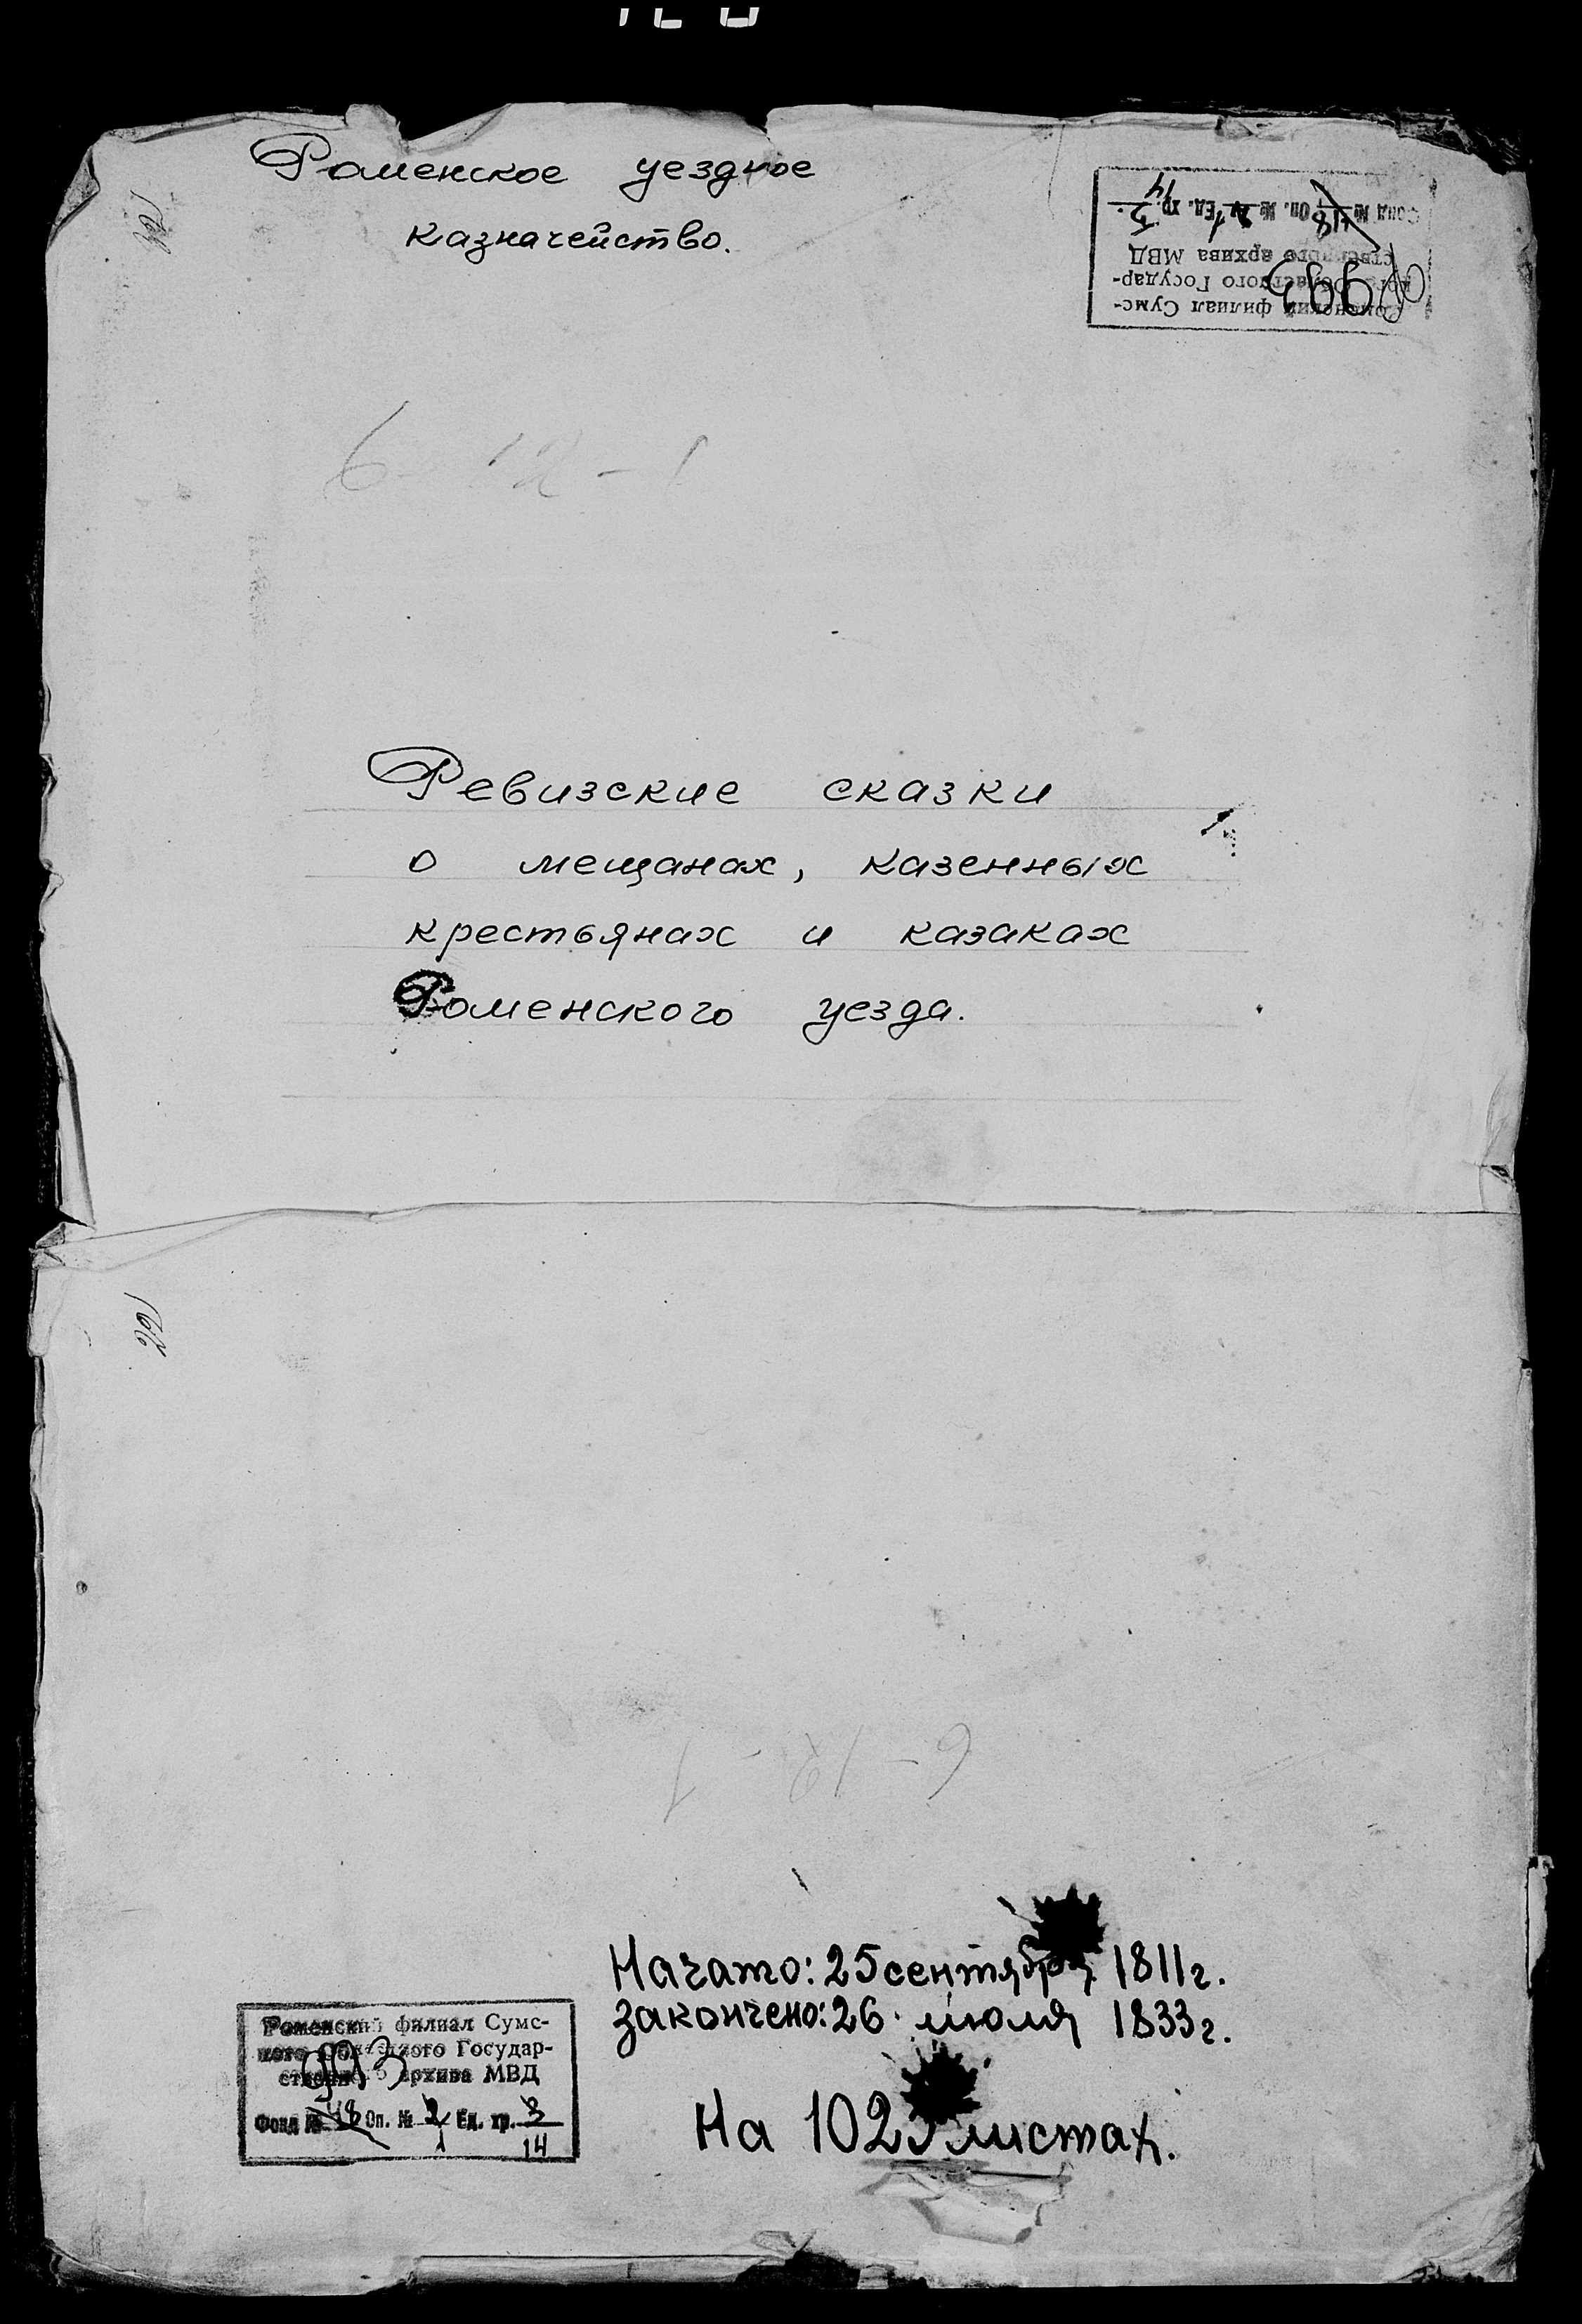 Роменское уездное
казначейство.
Роменский филиал Сумс-
кого областного Государ-
ственного архива МВД
993
Фонд № 48 Оп. № 2 1 Ед. хр. 3
14
6-12-1
Ревизские сказки
о мещанах, казенных
крестьянах и казаках
Роменского уезда.
6-12-1
Начато: 25 сентября 1811г.
закончено: 26 июля 1833г.
Роменский филиал Сумс-
кого Областного Государ-
ственного архива МВД
993
Фонд № 48 Оп. № 2 Ед. хр. 3
1 14
На 1025 листах.